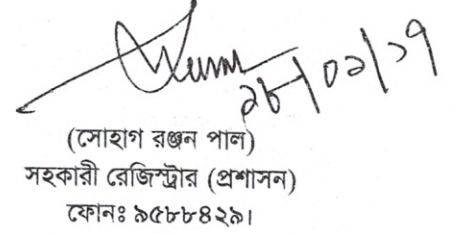 ২৮/০২/১৭
(সোহাগ রঞ্জন পাল)
সহকারী রেজিস্ট্রার (প্রশাসন)
ফোনঃ ৯৫৮৮৪২৯।